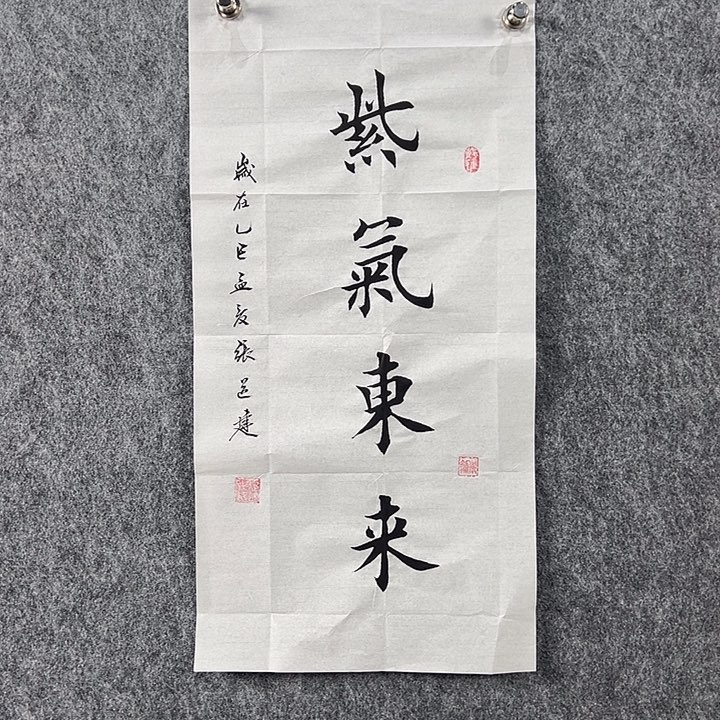 紫氣東来
歲在乙巳孟夏張邑建